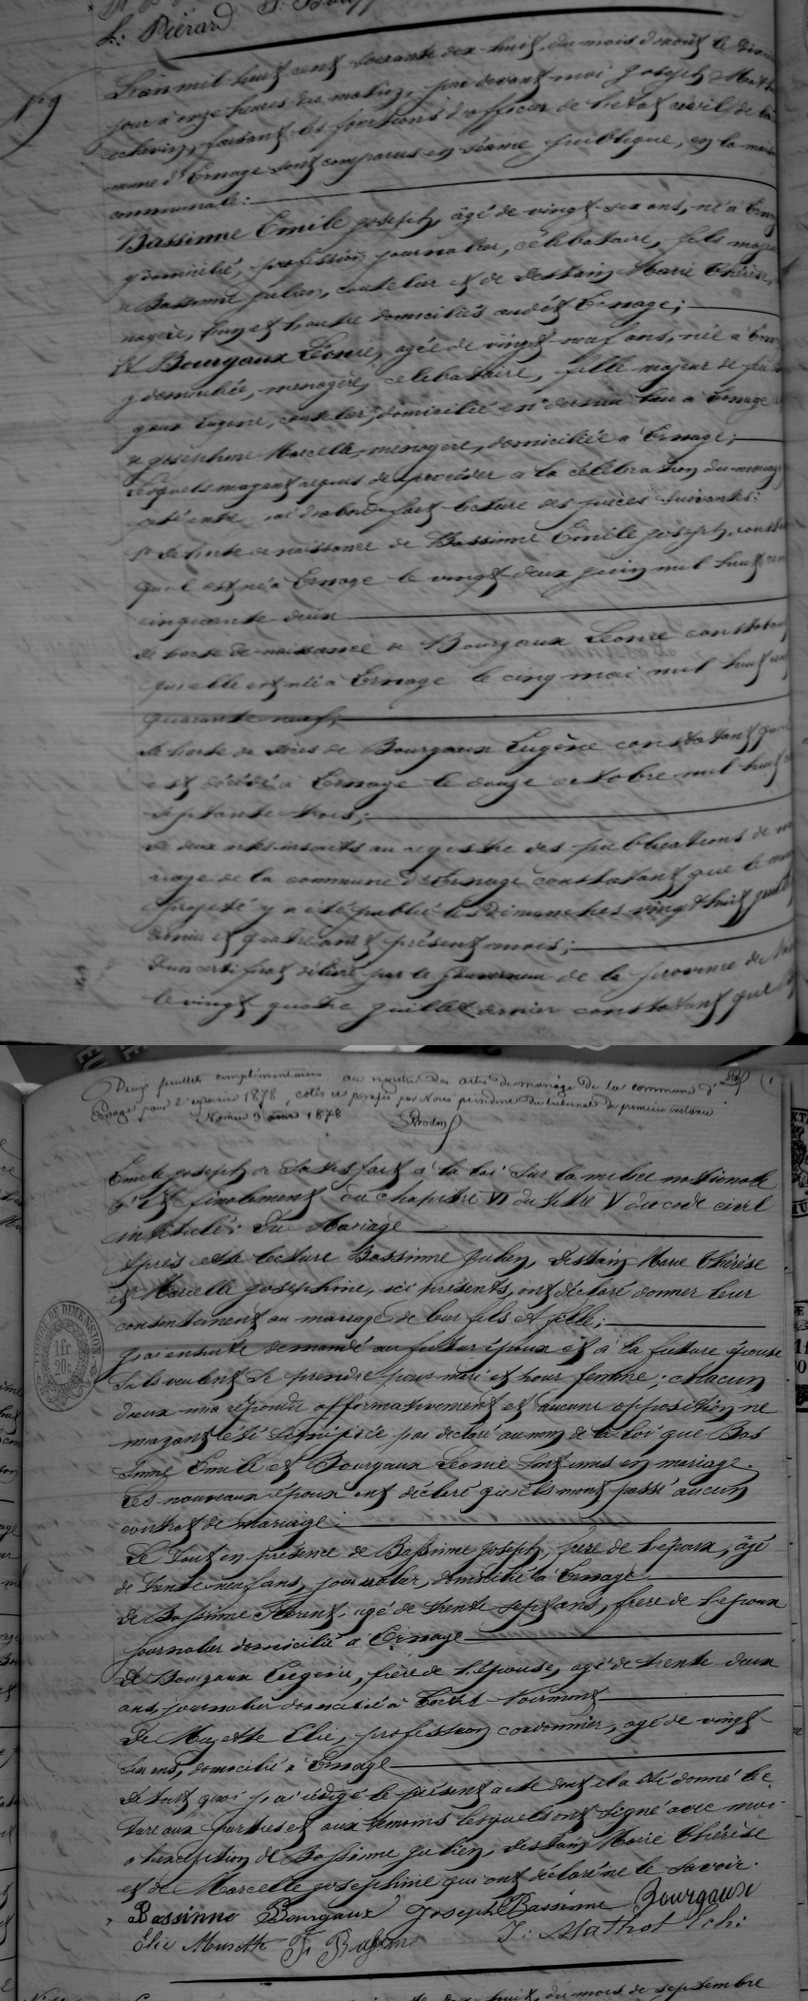 L. Piérard
N° 9
L'an mil huit cent soixante dix-huit, du mois d'août le
jour à onze heures du matin, par devant moi Joseph
échevin, faisant les fonctions d'officier de l'état civil de la
mune d'Ernage sont comparus en séance publique, en la maison
communale:
Bassinne Emile Joseph, âgé de vingt-six ans, né à
y domicilié, profession journalier, célibataire, fils majeur
de Bassinne Julien, coutelier et de Destain Marie Thérèse,
nagère, l'un et l'autre domiciliés audit Ernage;
Et Bourgaux Léonie, agée de vingt neuf ans, née à
y domiciliée, menagère, celibataire, fille majeur de
gaux Eugene, coutelier, domicilié en dernier lieu à Ernage
de Josephine Marcelle, menagère, domiciliée à Ernage;
Lesquels m'ayant requis de procéder à la célébration du mariage
présenté, j'ai d'abord fait lecture des pièces suivantes:
1° De l'acte de naissance de Bassinne Emile Joseph,
qu'il est né à Ernage le vingt deux juin mil huit cent
cinquante deux
De l'acte de naissance de Bourgaux Leonie constatant
qu'elle est née à Ernage le cinq mai mil huit cent
quarante neuf;
De l'acte de décès de Bourgaux Eugène constatant
est décédé à Ernage le douze octobre mil huit
septante trois;
De deux actes inscrits au registre des publications de
riage de la commune d'Ernage constatant que le
projeté y a été publié les dimanches vingt huit juillet
dernier et quatre août présent mois;
D'un certificat délivré par le gouverneur de la province de
le vingt quatre juillet dernier constatant que
Deux feuillets complémentaires au registre des actes de mariage de la commune d'
Ernage pour l'exercice 1878, cotés et parafés par Nous président du tribunal de première instance
Namur 3 1878
TIMBRE DE DIMENSION
1 fr
20 c
Emile Joseph a satisfait à la loi sur la milice nationale
Et finalement du chapitre VI du titre V du code civil
intitulé: Du Mariage
Après cette lecture Bassinne Julien, Destain Marie Thérèse
et Marcelle Josephine, ici présents, ont déclaré donner leur
consentement au mariage de leur fils et fille;
J'ai ensuite demandé au futur époux et à la future épouse
s'ils veulent se prendre pour mari et pour femme; chacun
d'eux m'a répondu affirmativement et aucune opposition ne
m'ayant été signifiée j'ai declaré au nom de la loi que Bas
sinne Emile et Bourgaux Leonie sont unis en mariage.
Les nouveaux époux ont déclaré qu'ils n'ont passé aucun
contrat de mariage:
Le tout en présence de Bassinne Joseph, frère de l'époux, âgé
de trente neuf ans, journalier, domicilié à Ernage
De Bassinne Florent, agé de trente sept ans, frère de l'epoux
journalier domicilié à Ernage
De Bourgaux Eugene, frère de l'épouse, agé de trente deux
ans, journalier domicilié à Cortil Noirmont
De Muzette Elie, profession cordonnier, agé de vingt
six ans, domicilié à Ernage
De tout quoi j'ai rédigé le présent acte dont il a été donné lec
ture aux parties et aux témoins lesquels ont signé avec moi
à l'exception de Bassinne Julien, Destain Marie Thérèse
et de Marcelle Josephine qui ont déclaré ne le savoir.
Bassinne Bourgaux Joseph Bassinne Bourgaux
Elie Musette F. Bassinne J. Mathot Ech:
huit, du mois de septembre